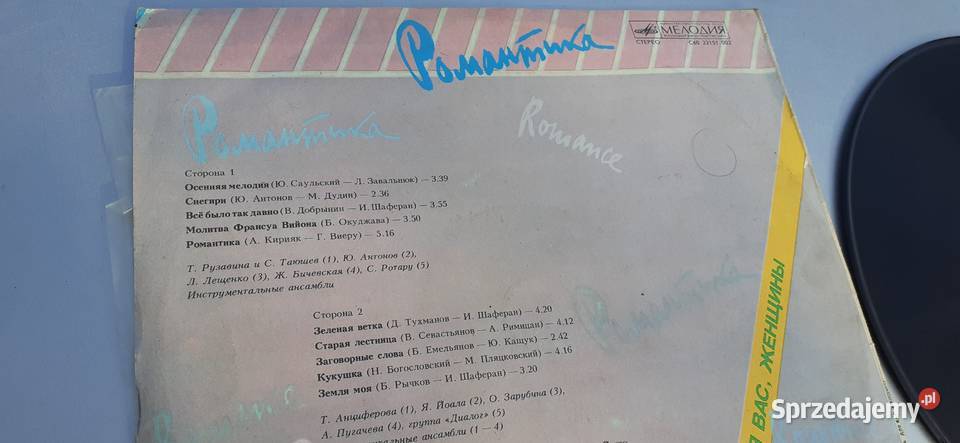 Романтика
МЕЛОДИЯ
СТЕРЕО С60 23151 002
Романтика
Romance
Сторона 1
Осенняя мелодия (Ю. Саульский — Л. Завальнюк) — 3.39
Снегири (Ю. Антонов — М. Дудин) — 2.36
Всё было так давно (В. Добрынин — И. Шаферан) — 3.55
Молитва Франсуа Вийона (Б. Окуджава) — 3.50
Романтика (А. Кирияк — Г. Виеру) — 5.16
Т. Рузавина и С. Таюшев (1), Ю. Антонов (2),
Л. Лещенко (3), Ж. Бичевская (4), С. Ротару (5)
Инструментальные ансамбли
Романтика
Сторона 2
Зеленая ветка (Д. Тухманов — И. Шаферан) — 4.20
Старая лестница (В. Севастьянов — А. Римицан) — 4.12
Заговорные слова (Б. Емельянов — Ю. Кащук) — 2.42
Кукушка (Н. Богословский — М. Пляцковский) — 4.16
Земля моя (Б. Рычков — И. Шаферан) — 3.20
Т. Анциферова (1), Я. Йоала (2), О. Зарубина (3),
А. Пугачева (4), группа «Диалог» (5)
ансамбли (1 — 4)
ВАС, ЖЕНЩИНЫ
Sprzedajemy.pl